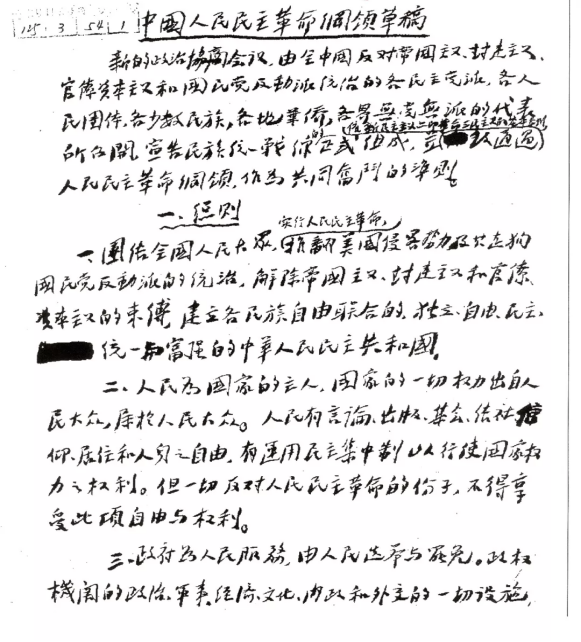 125 3 54 1
中國人民民主革命綱領草稿
新的政治協商会议,由全中國反对帝國主义、封建主义、
官僚资本主义和國民党反動派統治的各民主党派、各人
民團体、各少数民族、各地華僑、各界無党無派的代表
所召開,宣告民族統一戰線的正式組成,並 通過
人民民主革命綱領,作為共同奮鬥的準則。
一、總則
实行人民民主革命,
一、團结全國人民大眾, 推翻美國侵略势力及其走狗
國民党反動派的统治,解除帝國主义、封建主义和官僚
资本主义的束缚,建立各民族自由联合的、独立、自由、民主、
统一和富强的中華人民民主共和國。
二、人民為國家的主人,國家的一切权力出自人
民大众,属於人民大众。人民有言論、出版、集会、结社、信
仰、居住和人身之自由,有運用民主集中制以行使國家权
力之权利。但一切反对人民民主革命的份子,不得享
受此項自由与权利。
三、政府為人民服務,由人民选舉与罢免。政权
機関的政治、軍事、经济、文化、内政和外交的一切設施,